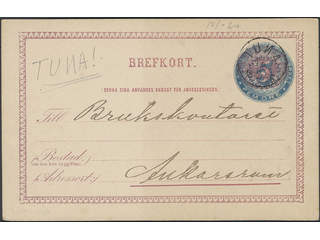 TUNA!
BREFKORT.
TUNA
5
DENNA SIDA ANVÄNDES ENDAST FÖR ADRESSERINGEN.
Till Brukskontoret
(Bostad
Adressort:) Ankarsrum